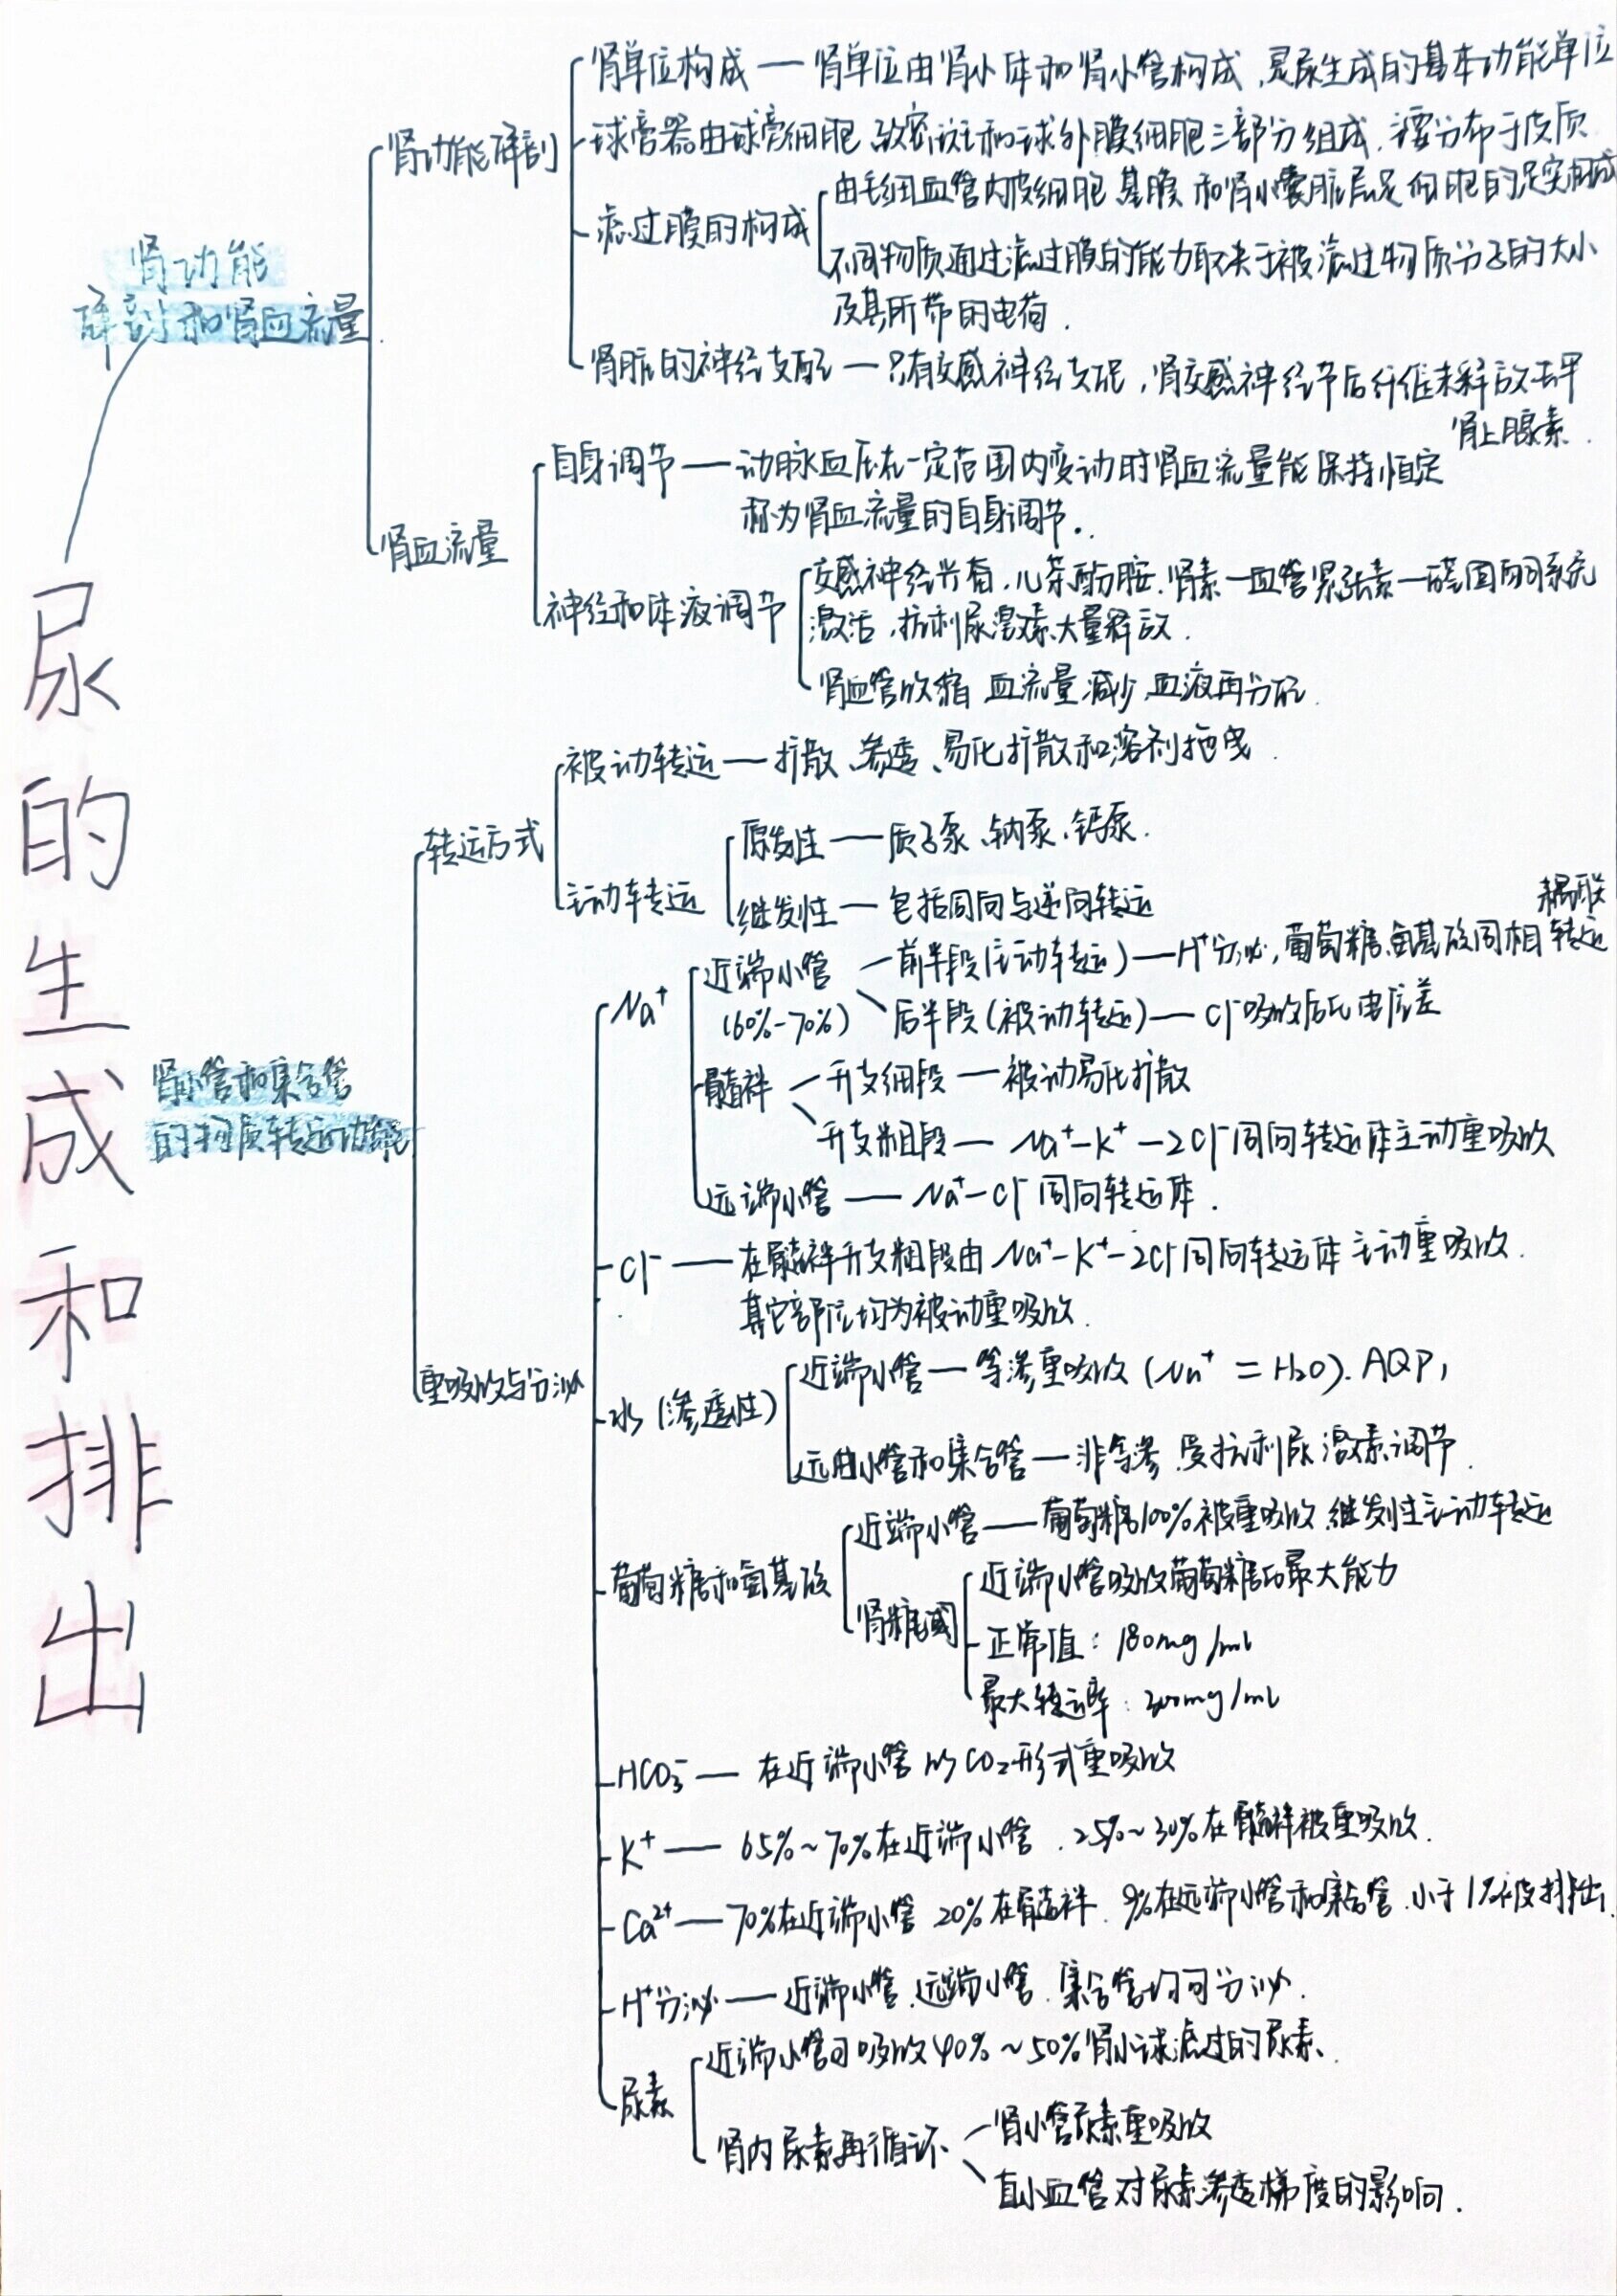 尿的生成和排出
肾功能
解剖和肾血流量
肾功能解剖
肾单位构成 — 肾单位由肾小体和肾小管构成,是尿生成的基本功能单位
球旁器由球旁细胞、致密斑和球外膜细胞三部分组成,主要分布于皮质
滤过膜的构成
由毛细血管内皮细胞、基膜和肾小囊脏层足细胞的足突构成
不同物质通过滤过膜的能力取决于被滤过物质分子的大小
及其所带的电荷.
肾脏的神经支配 — 只有交感神经支配,肾交感神经节后纤维末释放去甲
肾上腺素.
肾血流量
自身调节 — 动脉血压在一定范围内变动时肾血流量能保持恒定
称为肾血流量的自身调节.
神经和体液调节
交感神经兴奋,儿茶酚胺.肾素—血管紧张素—醛固酮系统
激活,抗利尿激素大量释放.
肾血管收缩 血流量减少,血液再分配.
肾小管和集合管
的物质转运功能
转运方式
被动转运 — 扩散、渗透、易化扩散和溶剂拖曳.
主动转运
原发性 — 质子泵、钠泵、钙泵.
继发性 — 包括同向与逆向转运
重吸收与分泌
Na⁺
近端小管
(60%-70%)
前半段(主动转运) — H⁺分泌,葡萄糖、氨基酸同相转运
耦联
后半段(被动转运) — Cl⁻吸收后比电位差
髓袢
升支细段 — 被动易化扩散
升支粗段 — Na⁺-K⁺-2Cl⁻同向转运体主动重吸收
远端小管 — Na⁺-Cl⁻同向转运体.
Cl⁻ — 在髓袢升支粗段由Na⁺-K⁺-2Cl⁻同向转运体主动重吸收.
其它部位均为被动重吸收.
水(渗透性)
近端小管 — 等渗重吸收(Na⁺ = H₂O). AQP1
远曲小管和集合管 — 非等渗,受抗利尿激素调节.
葡萄糖和氨基酸
近端小管 — 葡萄糖100%被重吸收,继发性主动转运
肾糖阈
近端小管吸收葡萄糖的最大能力
正常值:180mg/ml
最大转运率:300mg/ml
HCO₃⁻ — 在近端小管以CO₂形式重吸收
K⁺ — 65%~70%在近端小管.25%~30%在髓袢被重吸收.
Ca²⁺ — 70%在近端小管 20%在髓袢.9%在远端小管和集合管.小于1%被排出.
H⁺分泌 — 近端小管.远端小管.集合管均可分泌.
尿素
近端小管可吸收40%~50%肾小球滤过的尿素.
肾内尿素再循环
肾小管尿素重吸收
直小血管对尿素渗透梯度的影响.